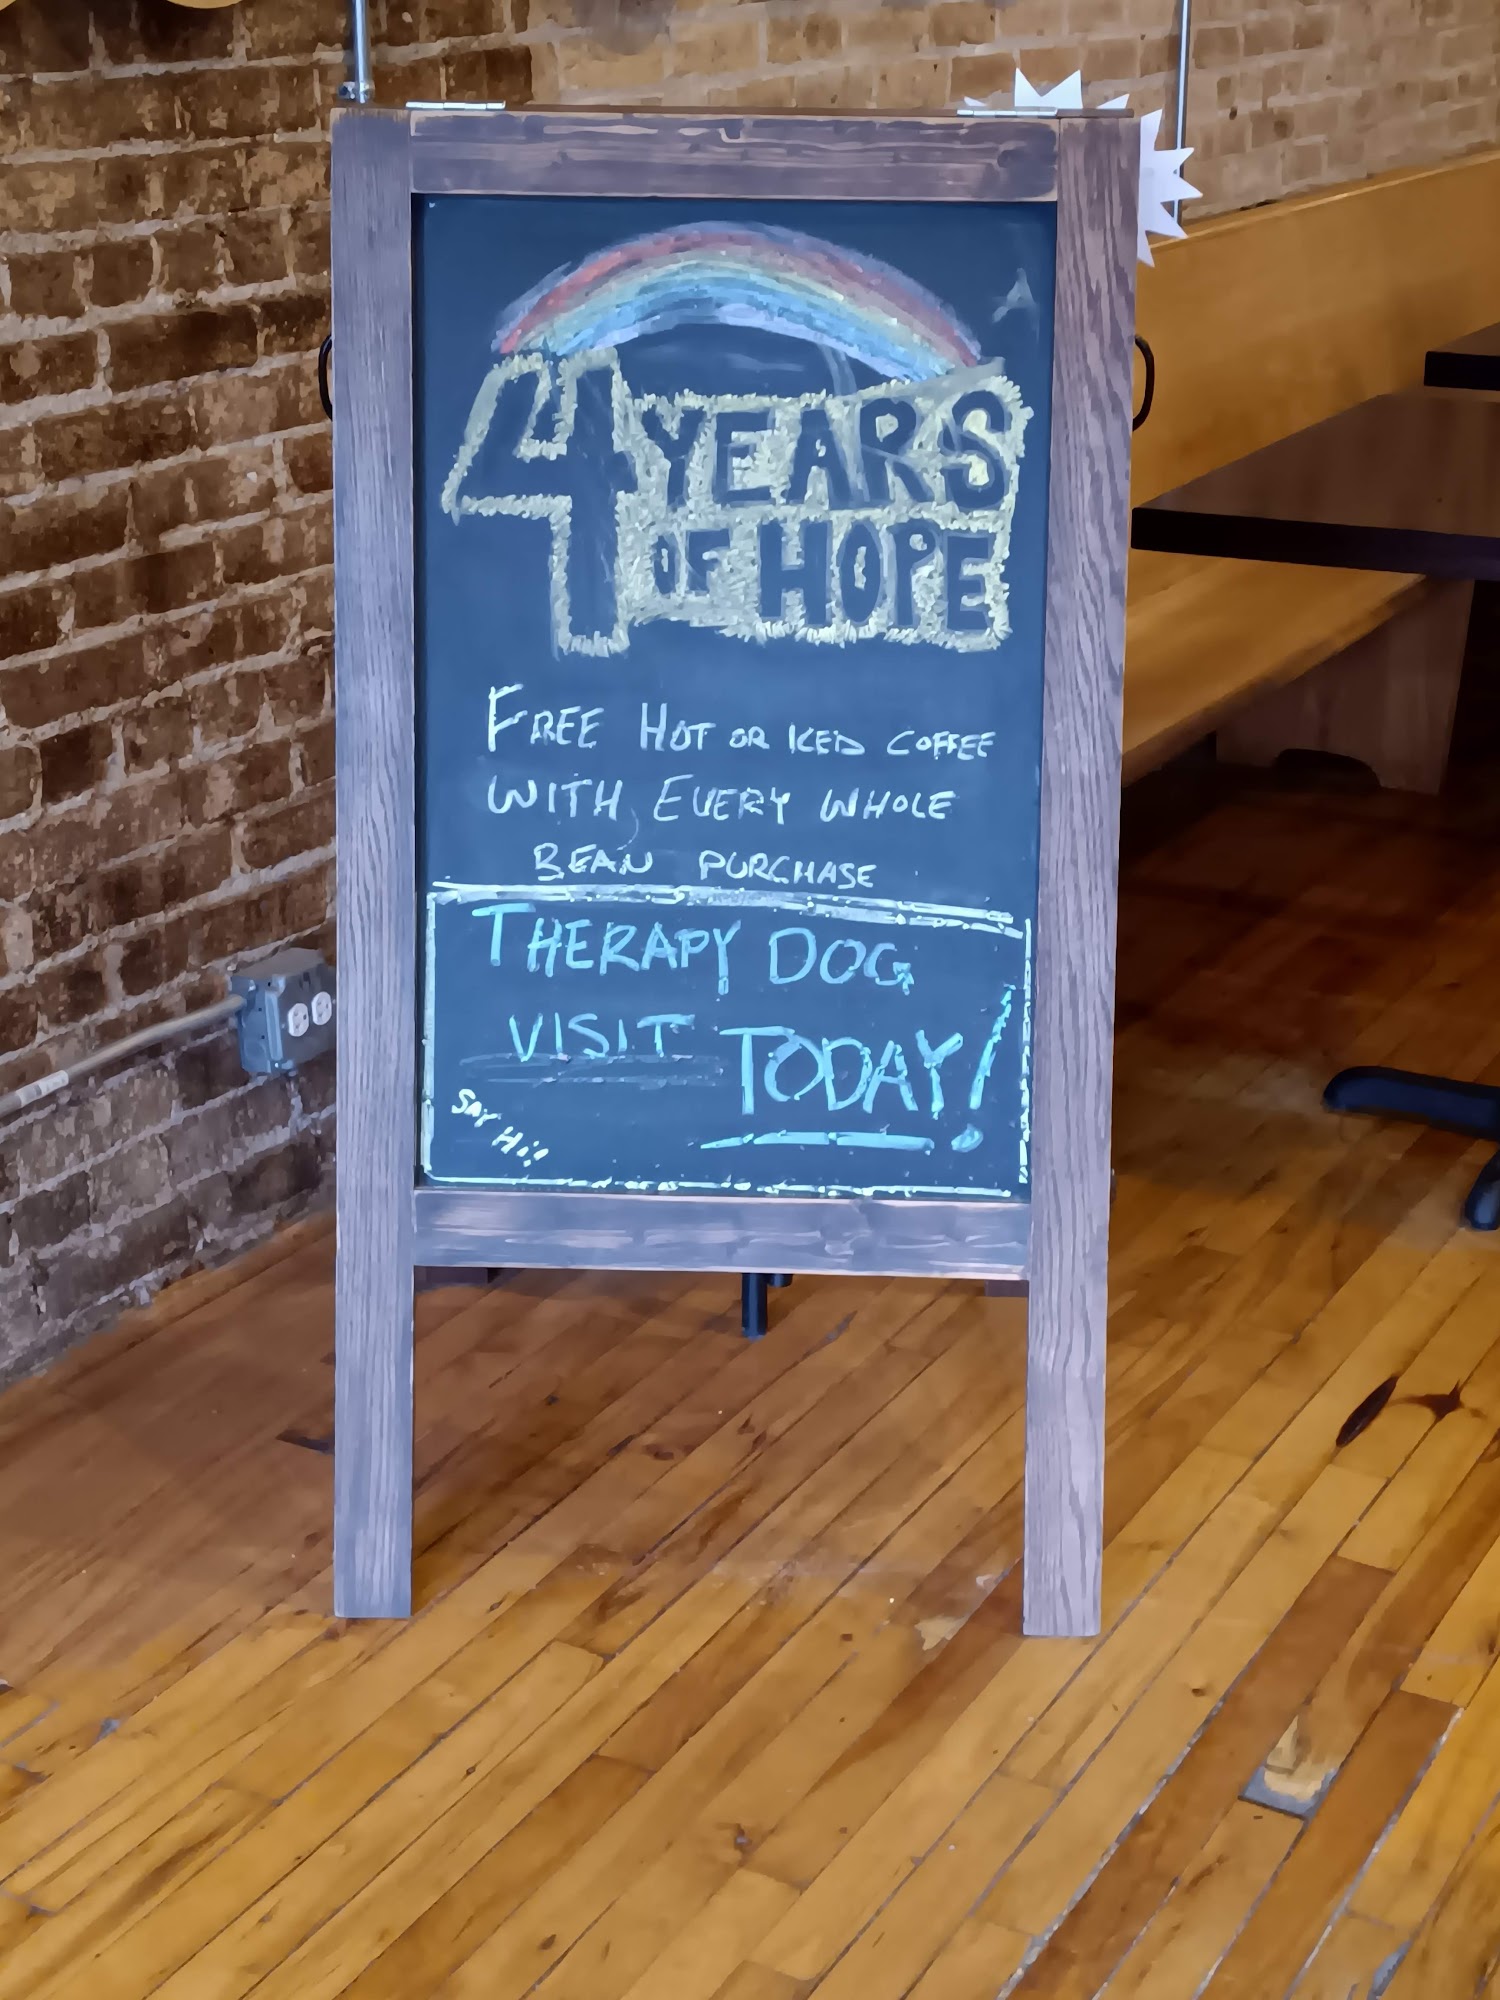 4 YEARS
OF HOPE
FREE HOT OR ICED COFFEE
WITH EVERY WHOLE
BEAN PURCHASE
THERAPY DOG
VISIT TODAY!
SAY HI!!